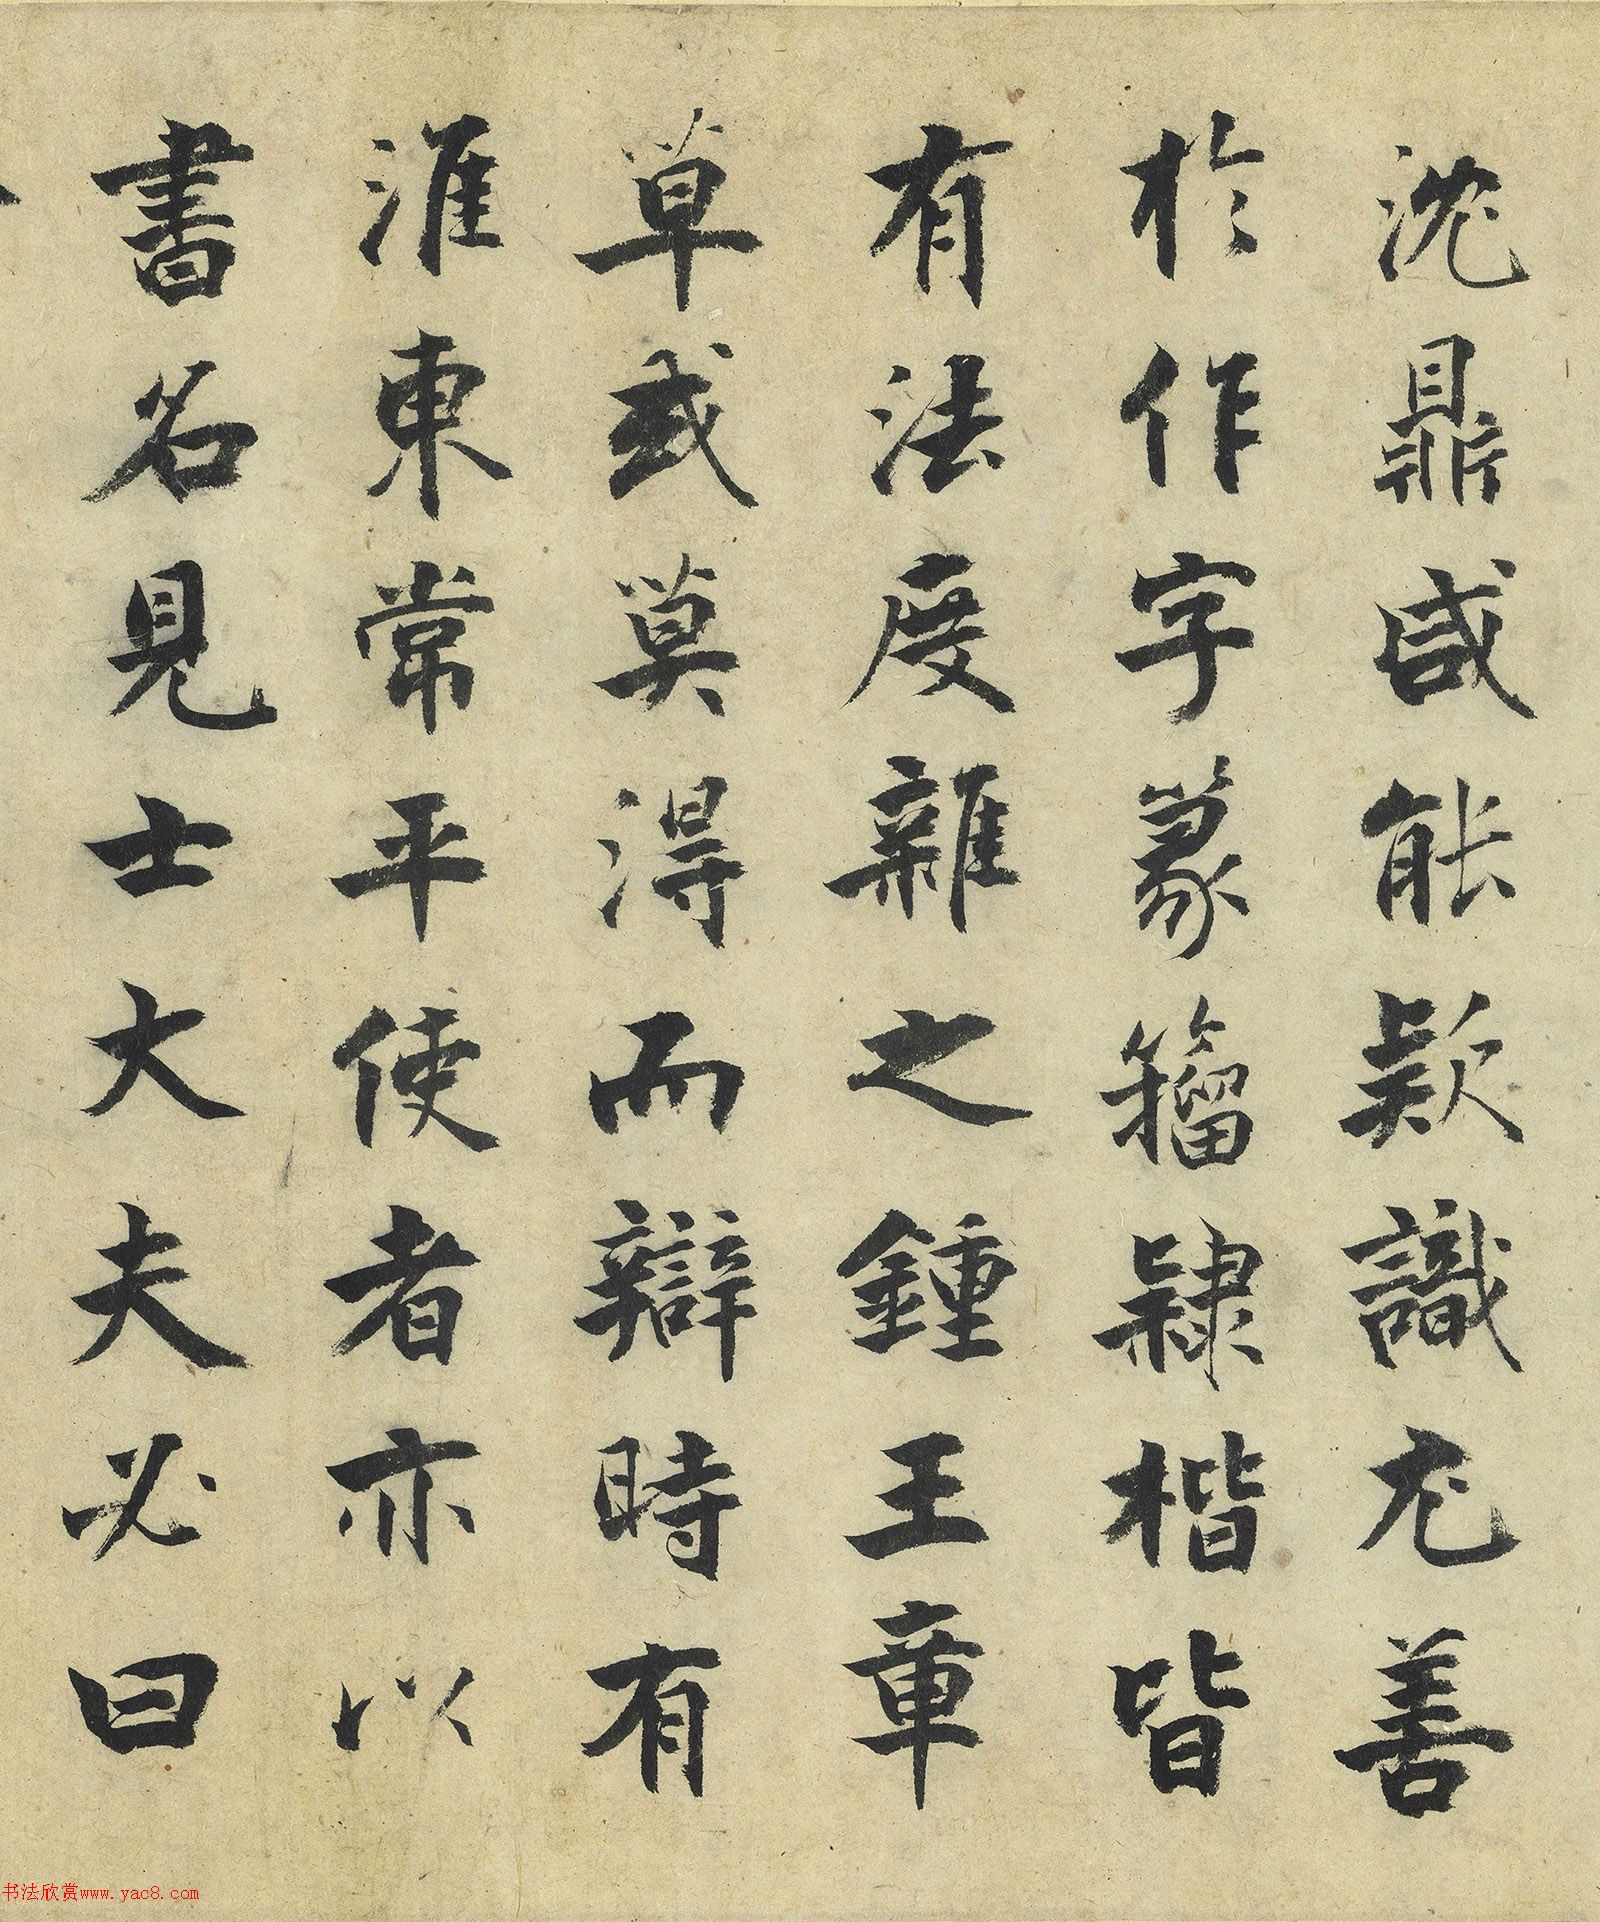 沈鼎咸能款識尤善
於作字篆籀隸楷皆
有法度雜之鍾王章
草或莫得而辯時有
淮東常平使者亦以
書名見士大夫必曰
书法欣赏www.yac8.com